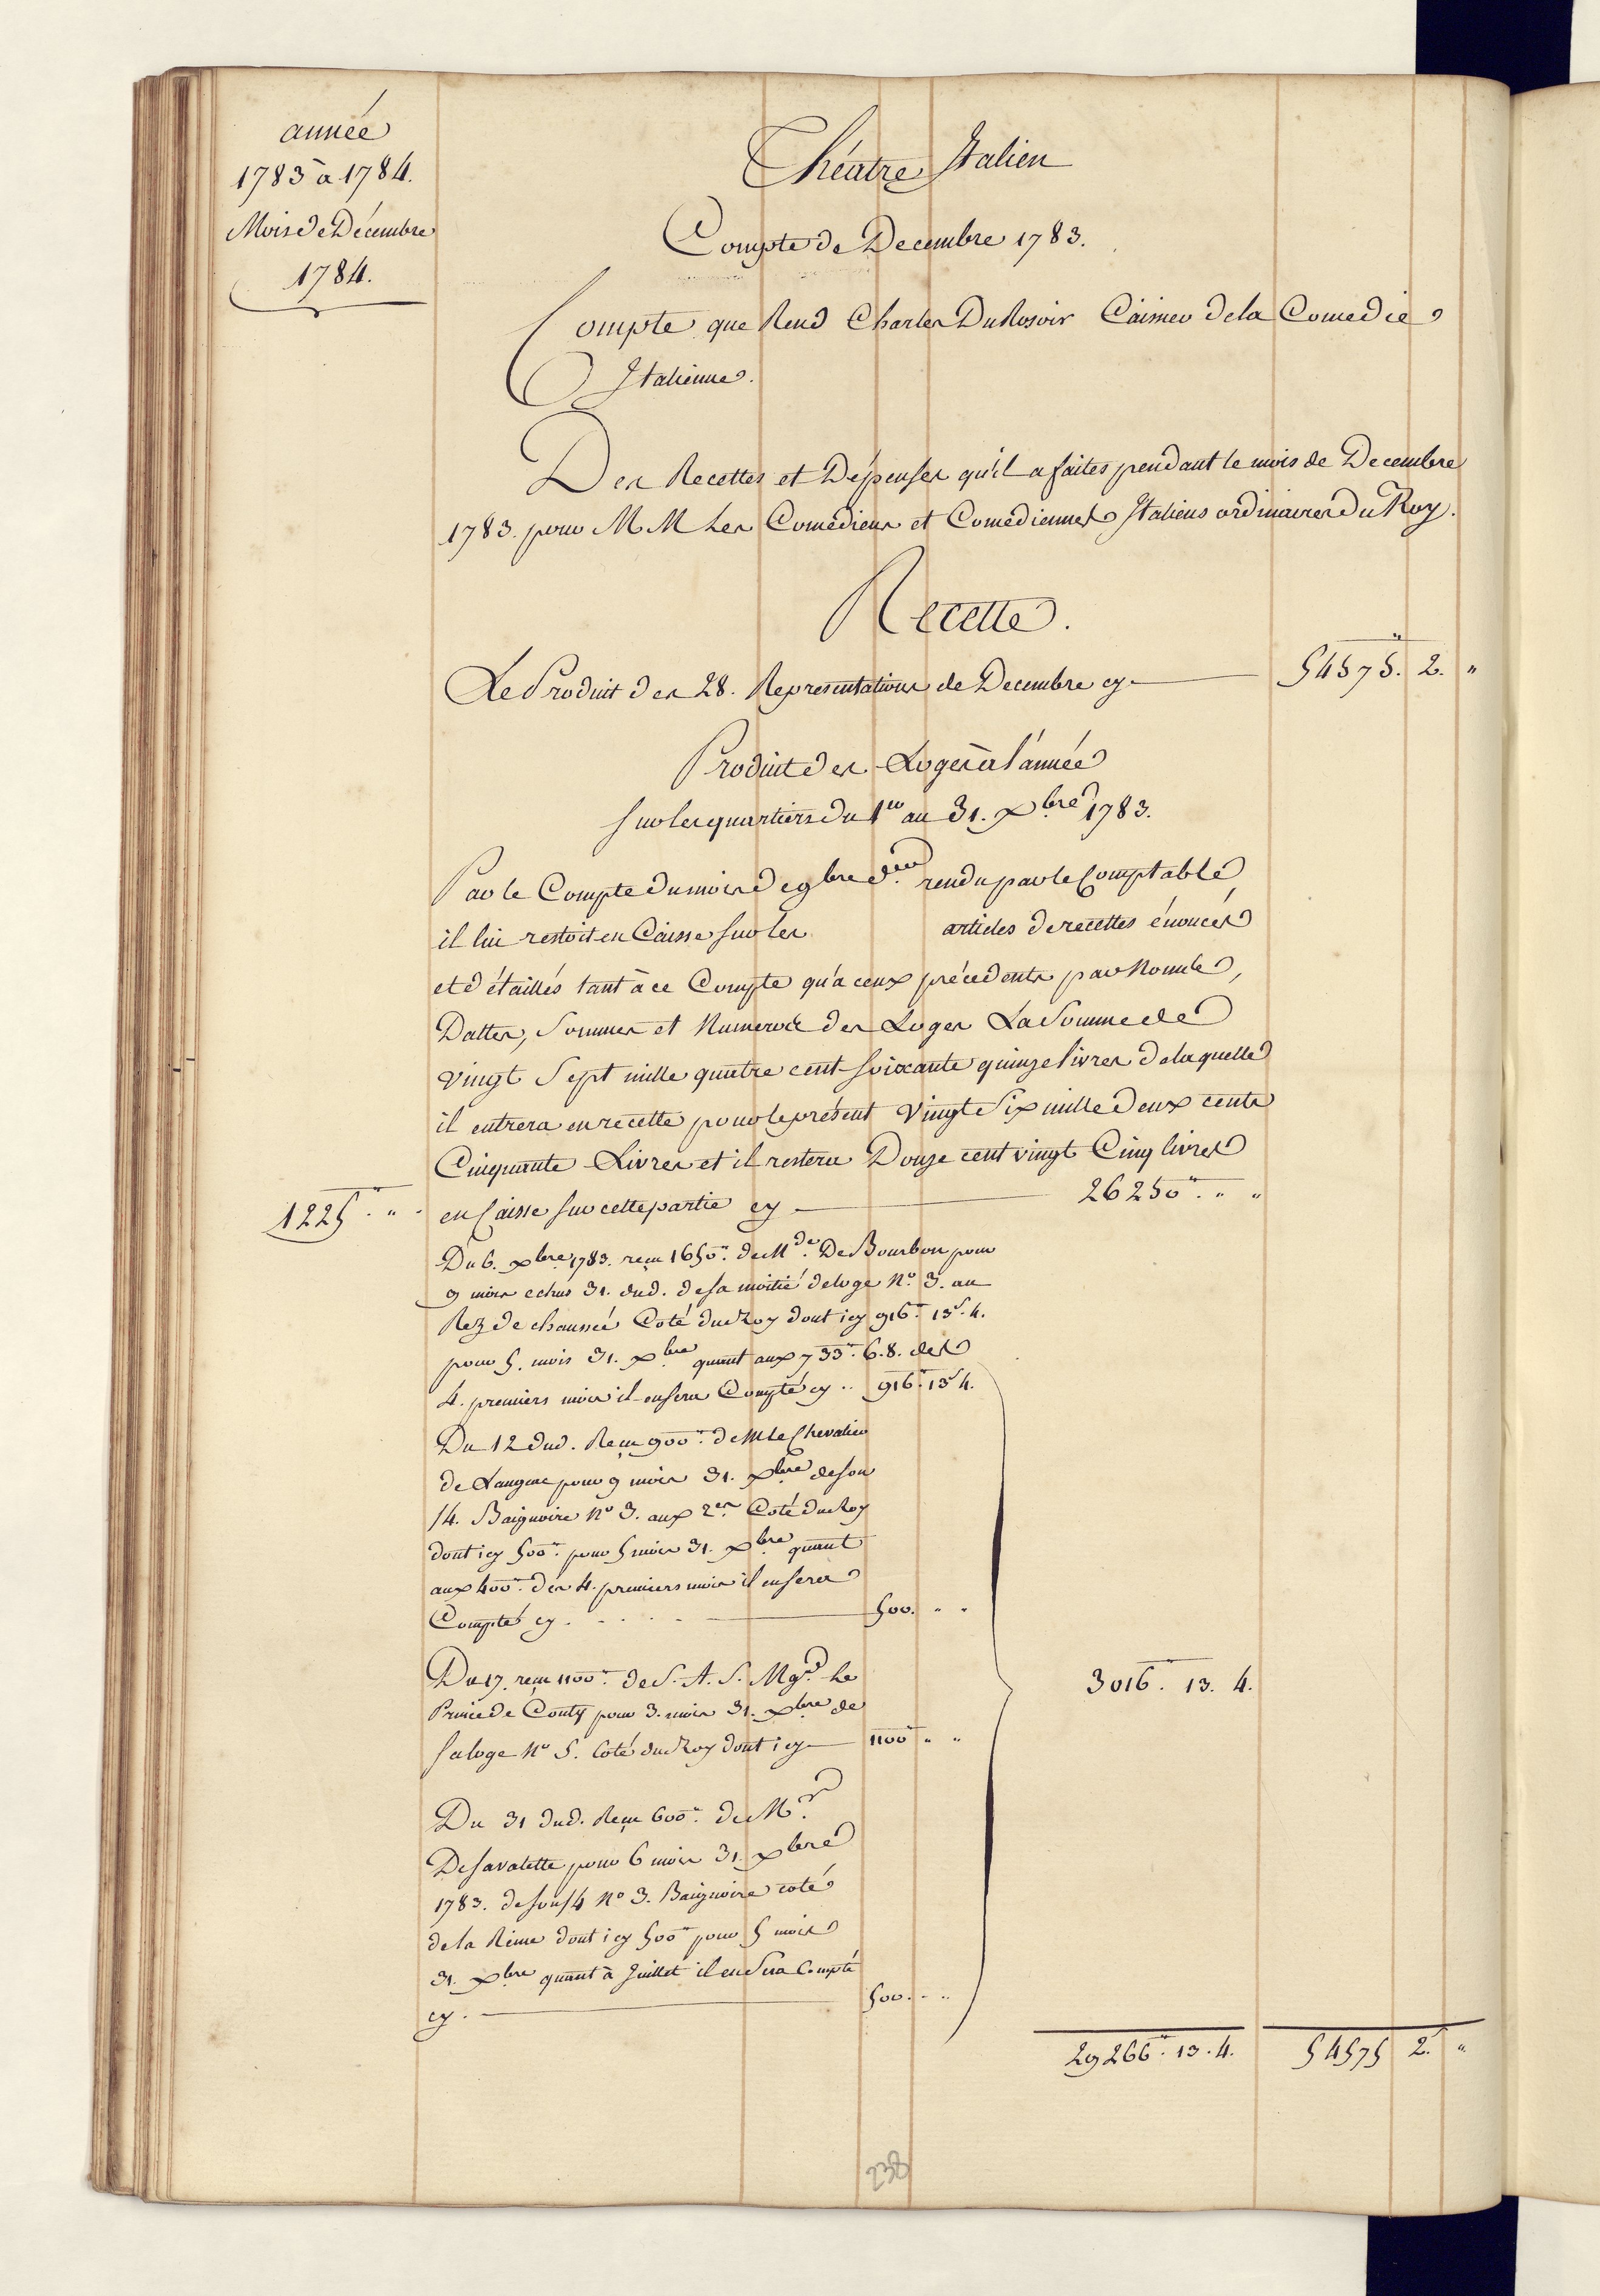 année
1783 à 1784.
Mois de Décembre
1784.
Théatre Italien
Compte de Decembre 1783.
Compte que Rend Charles DuRosoir Caissier de la Comedie
Italienne.
Des Recettes et Dépenses qu'il a faites pendant le mois de Decembre
1783. pour M M Les Comédiens et Comédiennes Italiens ordinaires Du Roy.
Recette.
Le Produit des 28. Representations de Decembre cy 54575. 2. "
Produit des Loges à l'année
sur les quartiers du 1er au 31. Xbre 1783.
Par le Compte du mois de 9bre der rendu par le Comptable
il lui restoit en Caisse sur les articles de recettes énoncés
et détaillés tant à ce Compte qu'a ceux précedents par Noms,
Dattes, Sommes et Numeros des Loges La Somme de
vingt Sept mille quatre cent soixante quinze livres de laquelle
il entrera en recette pour le présent vingt Six mille Deux cents
Cinquante Livres et il restera Douze cent vingt Cinq livres
1225 . " . en Caisse sur cette partie cy 26250tt. " "
Du 6. Xbre 1783. reçu 1650tt. de Mde. De Bourbon pour
9 mois echus 31. dud. de sa moitié de loge No. 3. au
Rez de chaussée Coté du Roy dont icy 916tt. 13s. 4.
pour 5. mois 31. Xbre quant aux 733tt. 6. 8. des
4. premiers mois il en sera Compté cy .. 916tt. 13s 4.
Du 12 dud. Reçu 900tt. de M le Chevalier
de pour 9 mois 31. Xbre de son
1/4. Baignoire No 3. aux 2es. Coté du Roy
dont icy 500tt. pour 5 mois 31. Xbre quant
aux 400tt. des 4. premiers mois il en sera
Compté cy . . . . . 500. " "
Du 17. reçu 1100tt. de S. A. S. Mgr. Le
Prince de Conty pour 3. mois 31. Xbre de
sa loge No 5. Coté du Roy dont icy 1100tt " "
3016. 13. 4.
Du 31 dud. Reçu 600tt. de Mr.
De Savalette pour 6 mois 31. Xbre
1783. de son 1/4 No 3. Baignoire coté
de la Reine dont icy 500tt pour 5 mois
31. Xbre quant à Juillet il en sera Compté
cy . 500. " "
29266tt. 13. 4. 54575 2. "
238